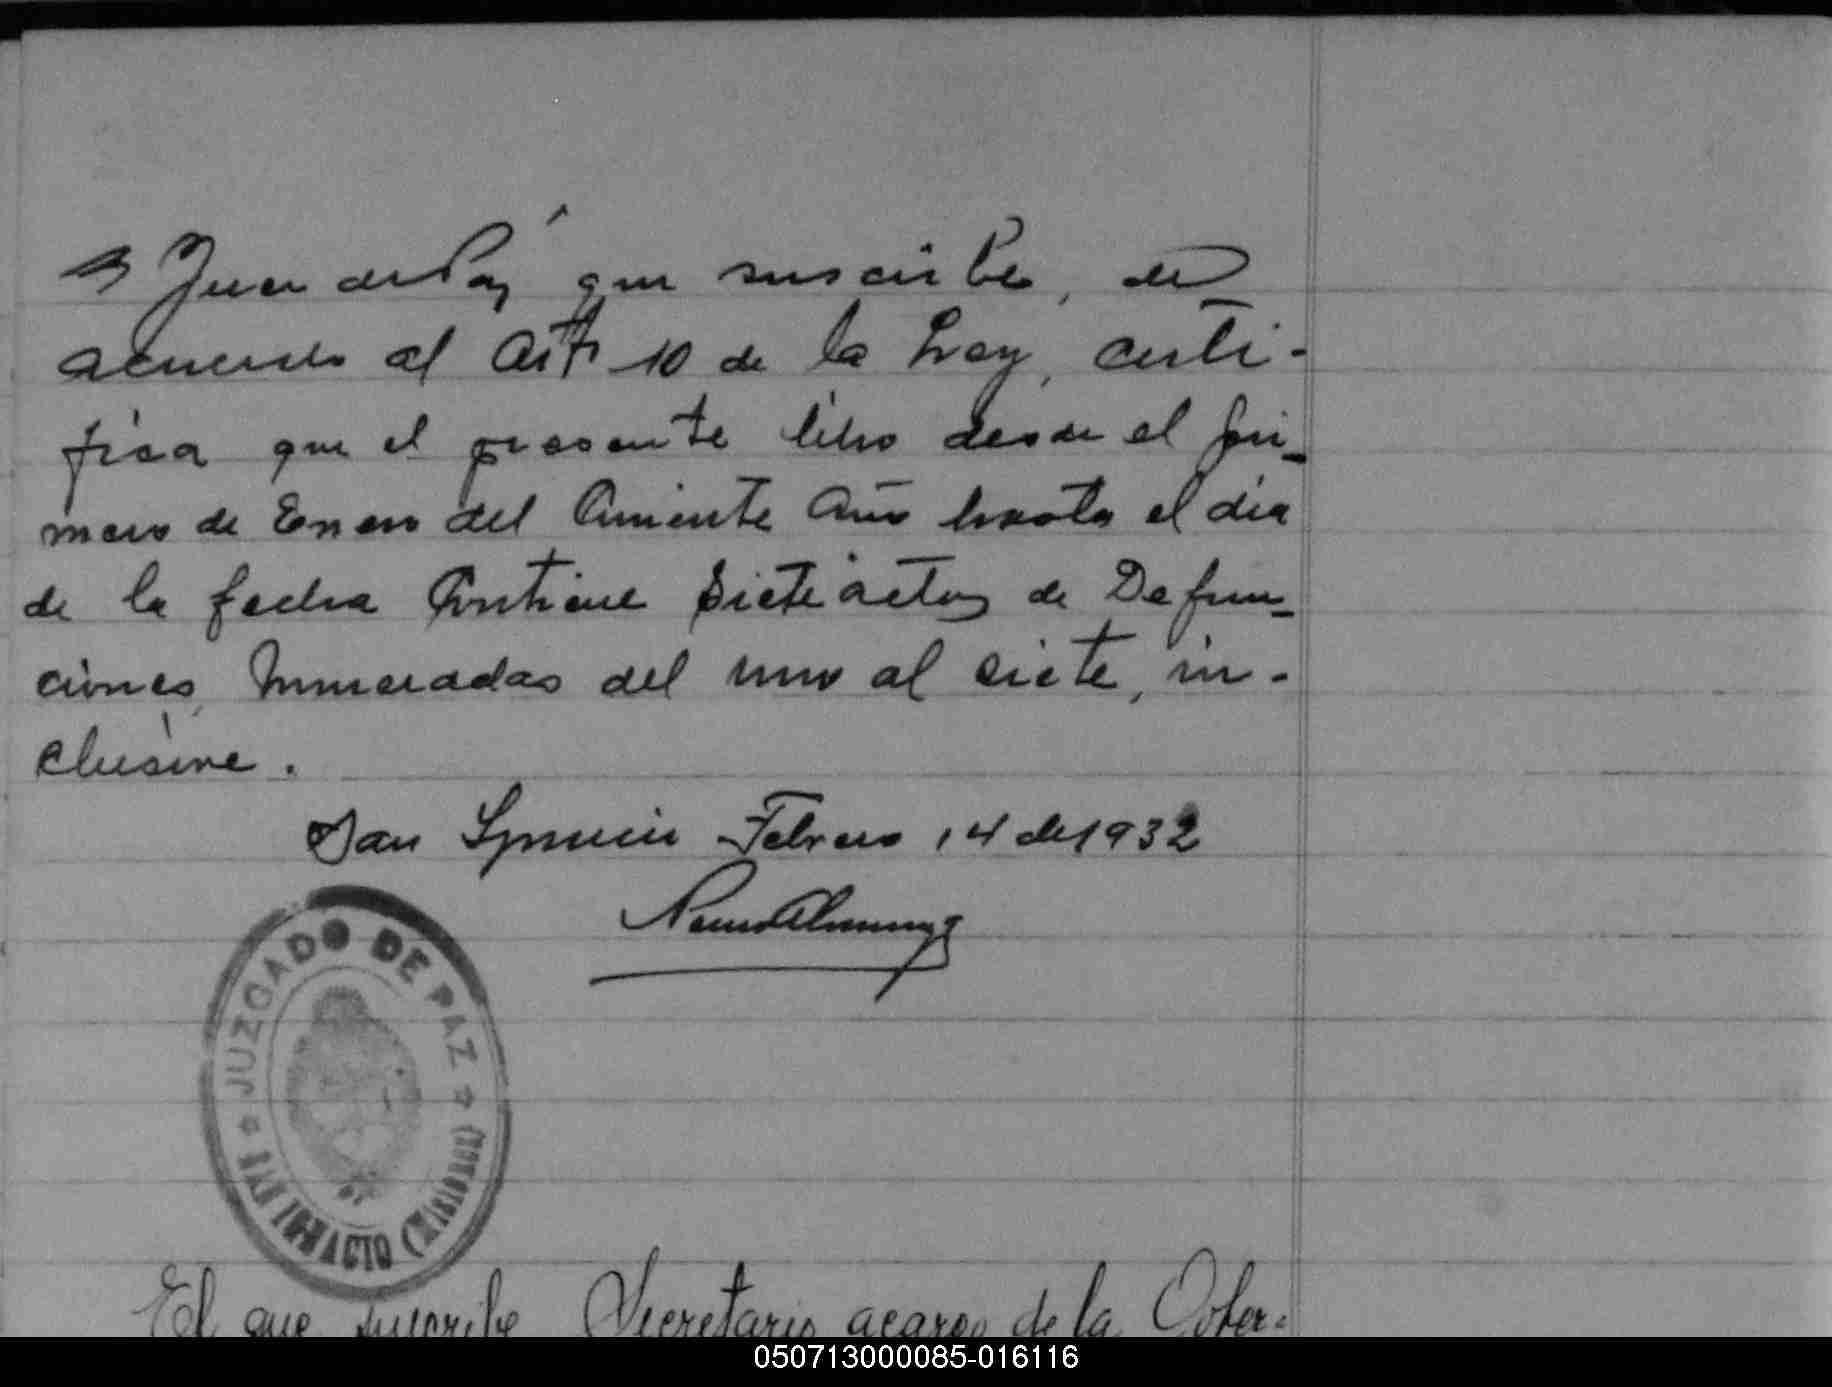 El Juez de Paz que suscribe, de
acuerdo al Art 10 de la Ley, certi-
fica que el presente libro desde el pri-
mero de Enero del Corriente Año hasta el dia
de la fecha Contiene Siete actas de Defun-
ciones, Numeradas del uno al siete, in-
clusive.
San Ignacio Febrero 14 de 1932
JUZGADO DE PAZ
SAN IGNACIO (MISIONES)
El que suscribe Secretario acargo de la Gober-
050713000085-016116